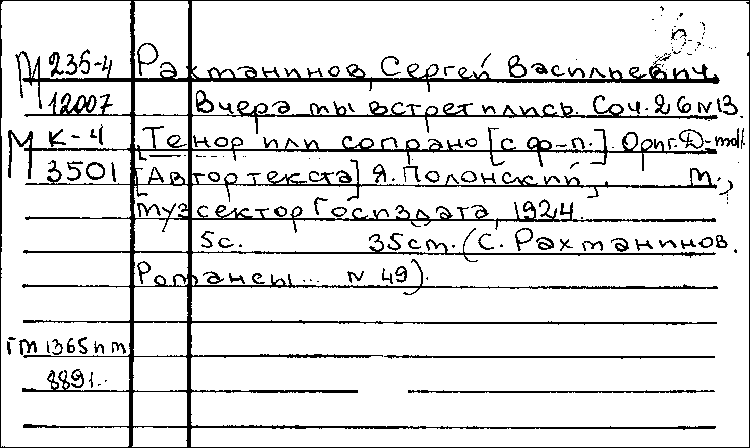 62
М 235-4 Рахманинов, Сергей Васильевич.
12007 Вчера мы встретились. Соч. 26 N 13.
М К-4 Тенор или сопрано [с ф-п.]. Ориг. D-moll.
3501 [Автор текста] Я. Полонский, М.,
Музсектор Госиздата, 1924.
5с. 35см. (С. Рахманинов.
Романсы... N 49).
ГМ 1365 п м
8891.